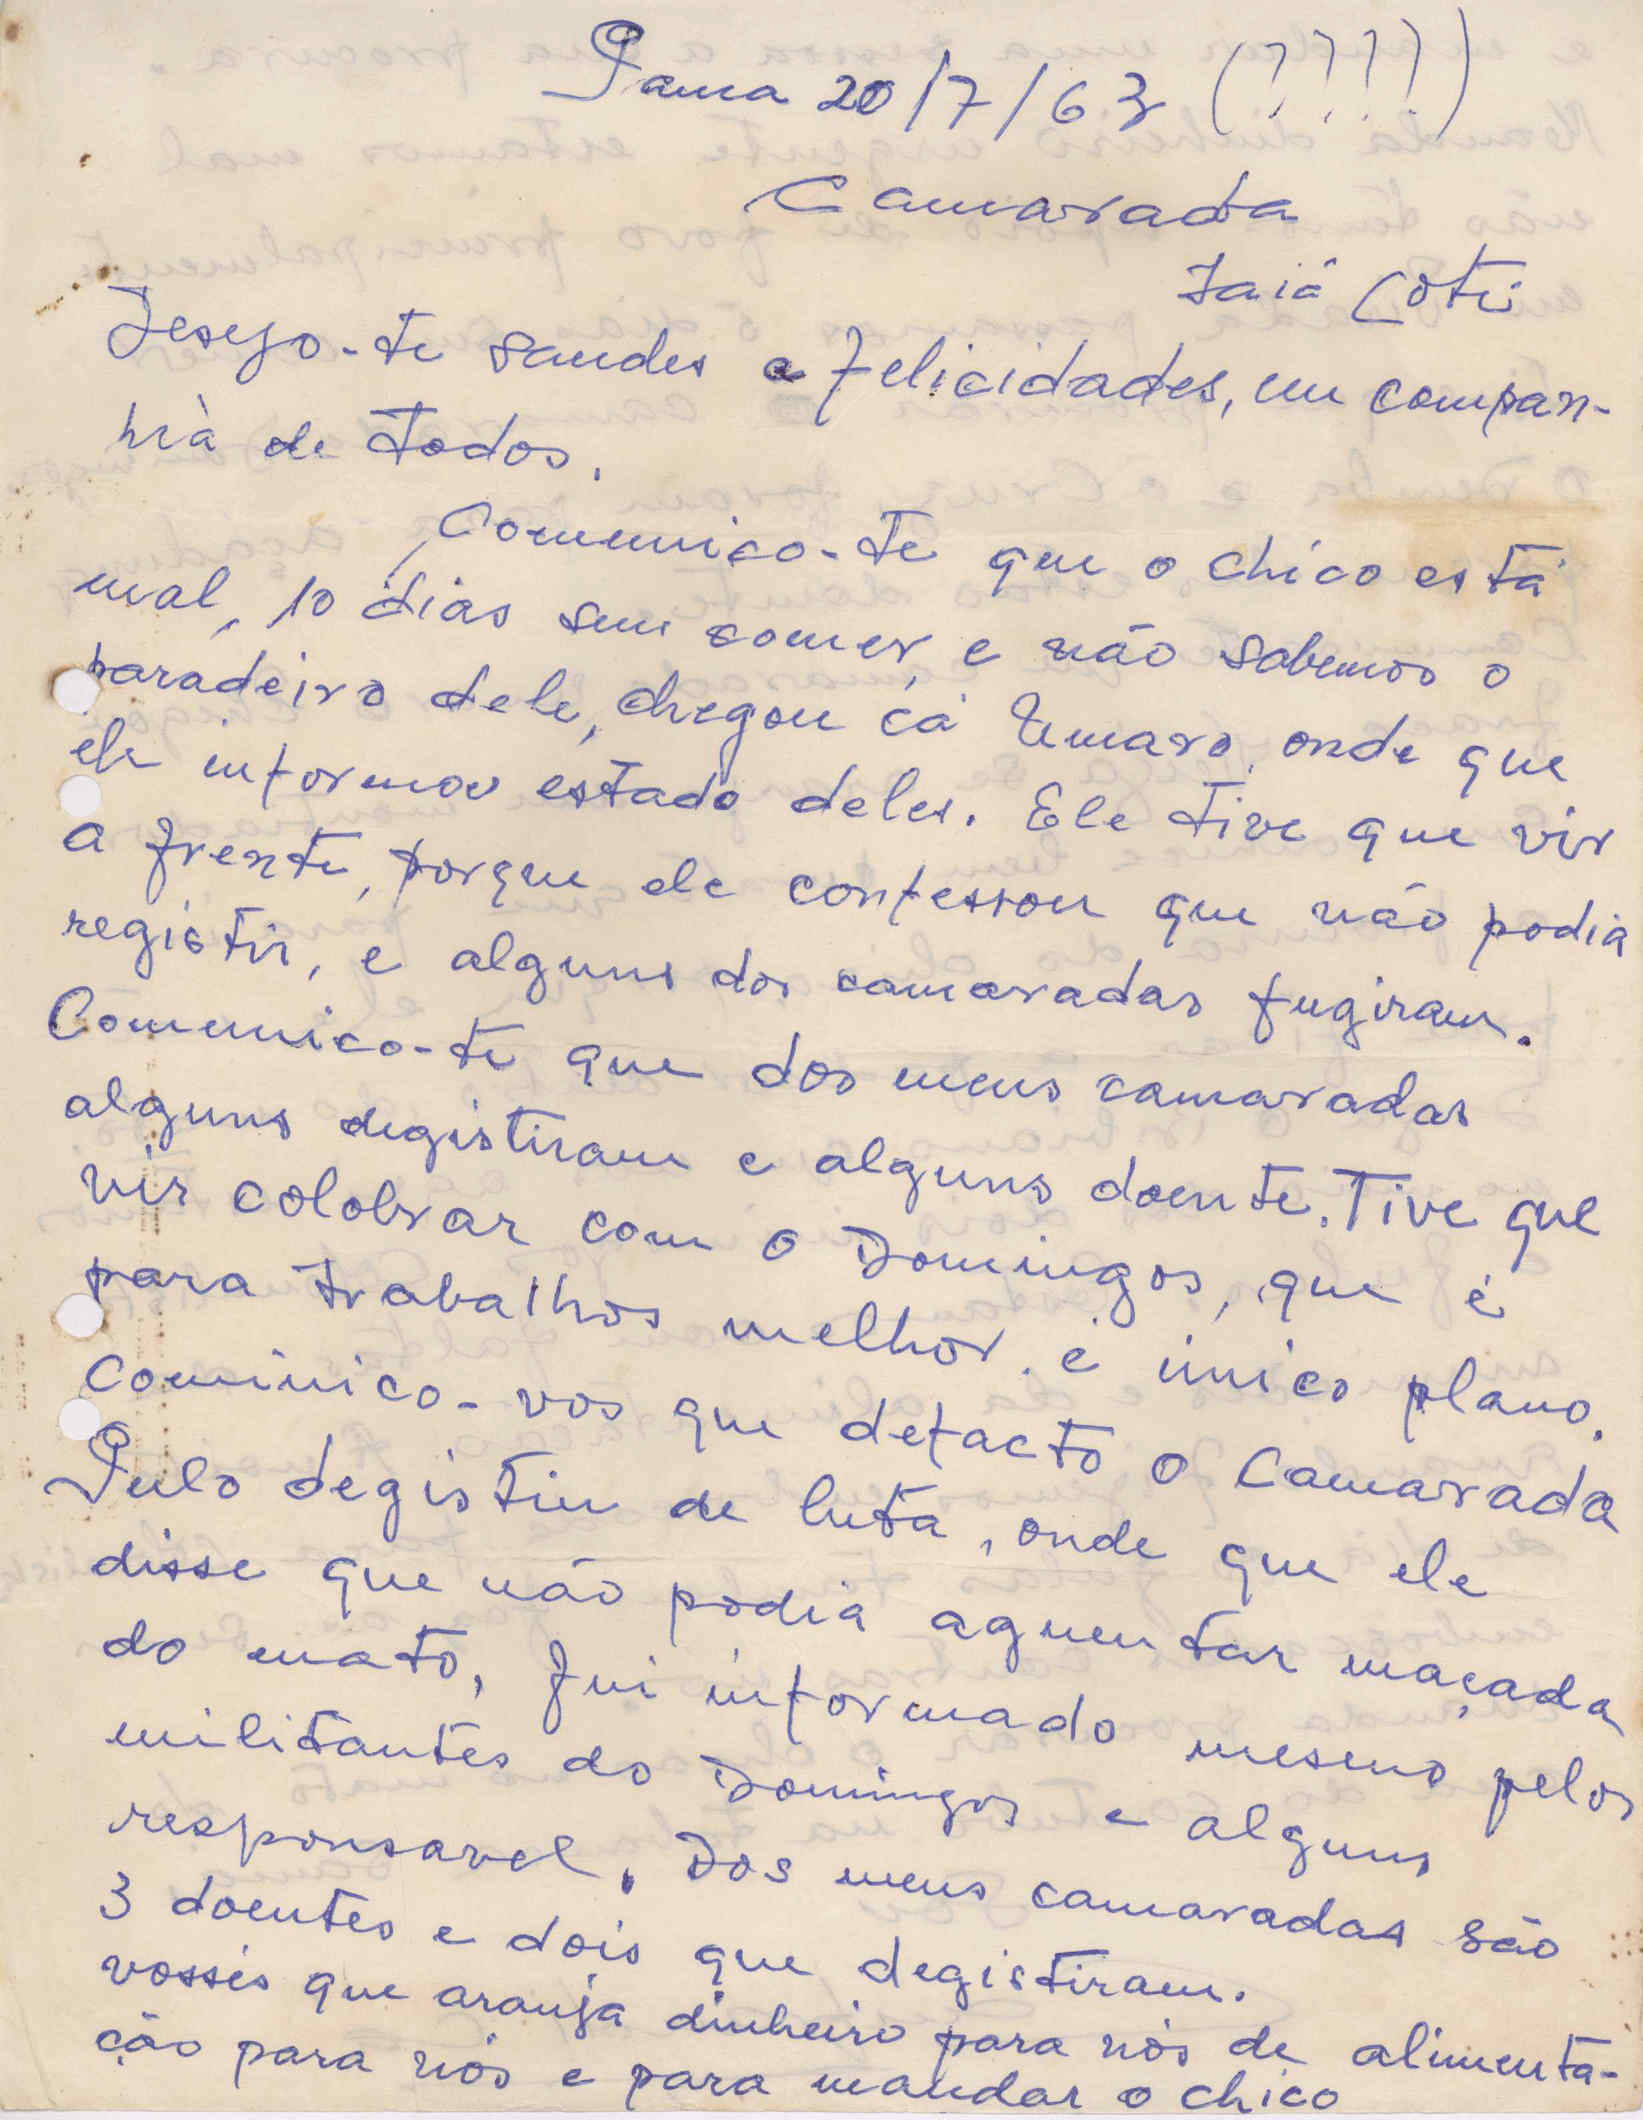 Sama 20/7/63 (????)
Camarada
Iaiá Coté
Desejo-te saudes e felicidades, em compan-
hià de todos.
Comunico-te que o chico está
mal, 10 dias sem comer, e não sabemos o
paradeiro dele, chegou cá Umaro, onde que
ele informou estado deles. Ele tive que vir
a frente, porque ele confessou que não podia
registir, e alguns dos camaradas fugiram.
Comunico-te que dos meus camaradas
alguns degistiram e alguns doente. Tive que
vir colobrar com o Domingos, que é
para trabalhos melhor. é único plano.
Cominico-vos que defacto o Camarada
Pulo degistiu de luta, onde que ele
disse que não podia aguentar maçada
do mato, fui informado mesmo pelos
militantes do Domingos e alguns
responsavel. Dos meus camaradas são
3 doentes e dois que degistiram.
vossés que aranja dinheiro para nós de alimenta-
ção para nós e para mandar o chico